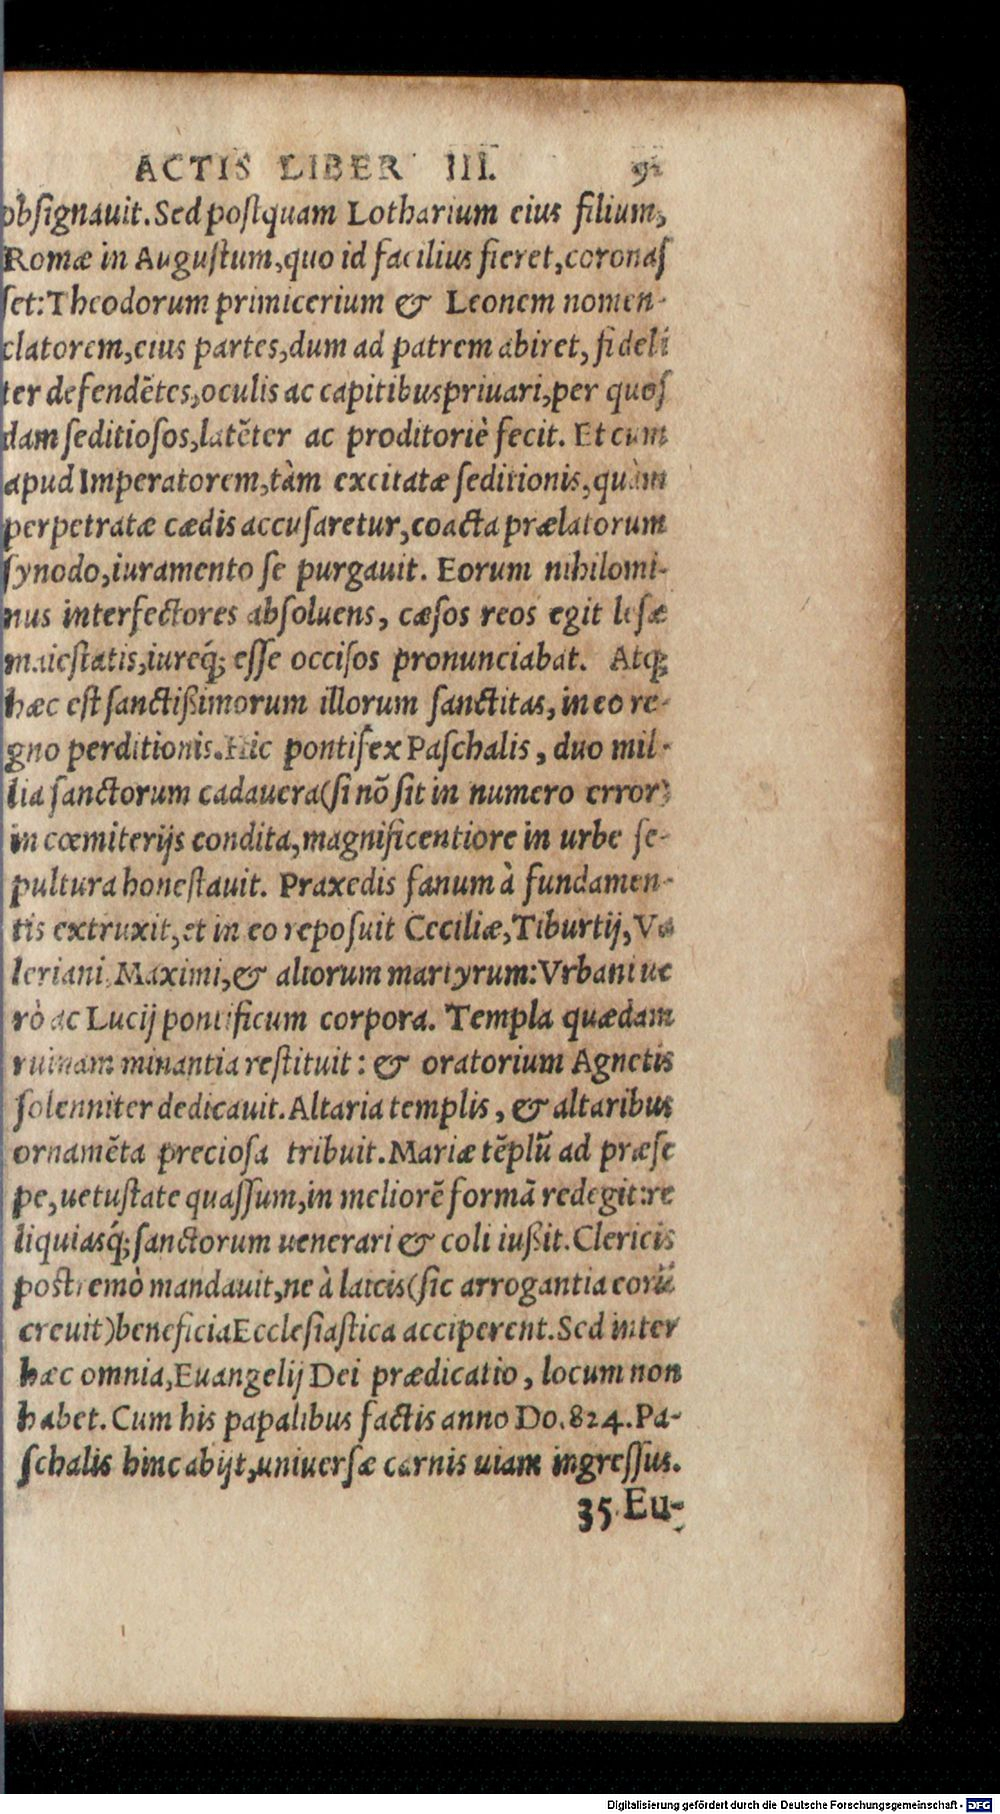 ACTIS LIBER III. 91
obſignauit. Sed poſtquam Lotharium eius filium,
Romæ in Auguſtum, quo id facilius fieret, coronaſ
ſet: Theodorum primicerium & Leonem nomen-
clatorem, eius partes, dum ad patrem abiret, fideli
ter defendẽtes, oculis ac capitibus priuari, per quoſ
dam ſeditioſos, latẽter ac proditoriè fecit. Et cum
apud Imperatorem, tàm excitatæ ſeditionis, quàm
perpetratæ cædis accuſaretur, coacta prælatorum
ſynodo, iuramento ſe purgauit. Eorum nihilomi-
nus interfectores abſoluens, cæſos reos egit leſæ
maieſtatis, iureq́; eſſe occiſos pronunciabat. Atq;
hæc eſt ſanctißimorum illorum ſanctitas, in eo re-
gno perditionis. Hic pontifex Paſchalis, duo mil-
lia ſanctorum cadauera (ſi nõ ſit in numero error)
in cœmiterijs condita, magnificentiore in urbe ſe-
pultura honeſtauit. Praxedis fanum à fundamen-
tis extruxit, et in eo repoſuit Ceciliæ, Tiburtij, Va
leriani, Maximi, & aliorum martyrum: Vrbani ue
rò ac Lucij pontificum corpora. Templa quædam
ruinam minantia reſtituit: & oratorium Agnetis
ſolenniter dedicauit. Altaria templis, & altaribus
ornamẽta precioſa tribuit. Mariæ tẽplũ ad præſe
pe, uetuſtate quaſſum, in meliorẽ formã redegit: re
liquiasq́; ſanctorum uenerari & coli iußit. Clericis
poſtremò mandauit, ne à laicis (ſic arrogantia eorũ
creuit) beneficia Eccleſiaſtica acciperent. Sed inter
hæc omnia, Euangelij Dei prædicatio, locum non
habet. Cum his papalibus factis anno Do. 824. Pa-
ſchalis hinc abijt, uniuerſæ carnis uiam ingreſſus.
35. Eu-
Digitalisierung gefördert durch die Deutsche Forschungsgemeinschaft - DFG